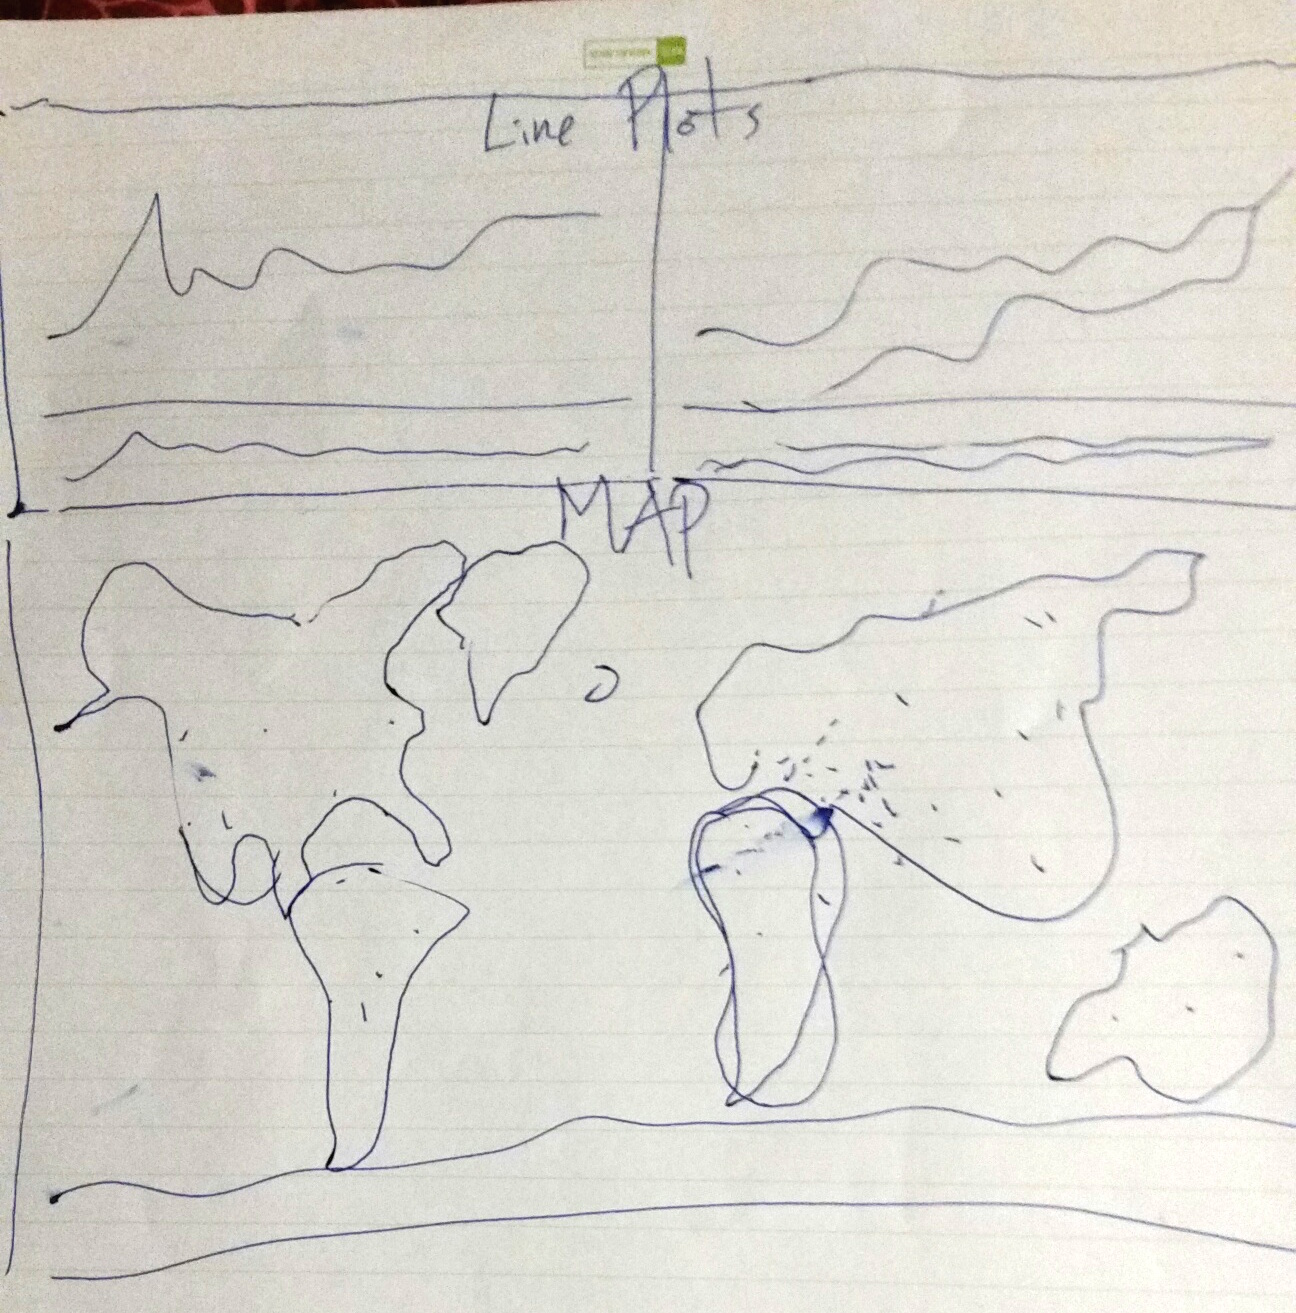 Line Plots
MAP